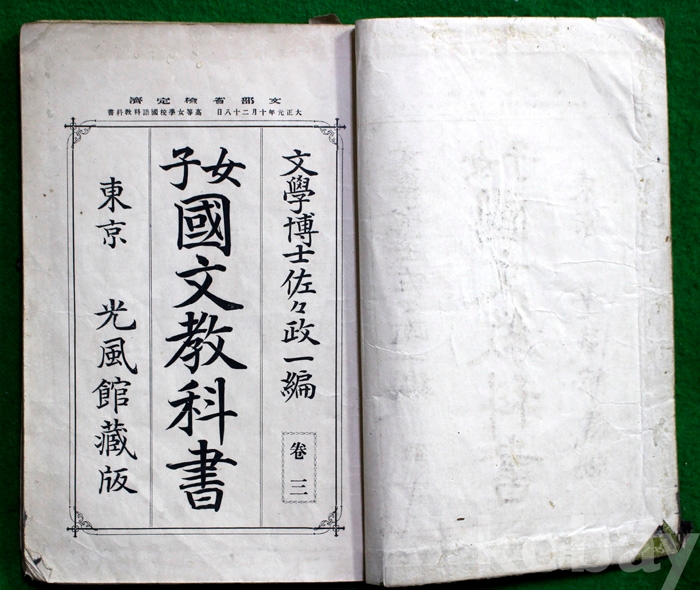 文部省檢定濟
大正元年十月二十八日 高等女學校國語科教科書
文學博士佐々政一編
卷三
女子
國文教科書
東京 光風館藏版
kobay